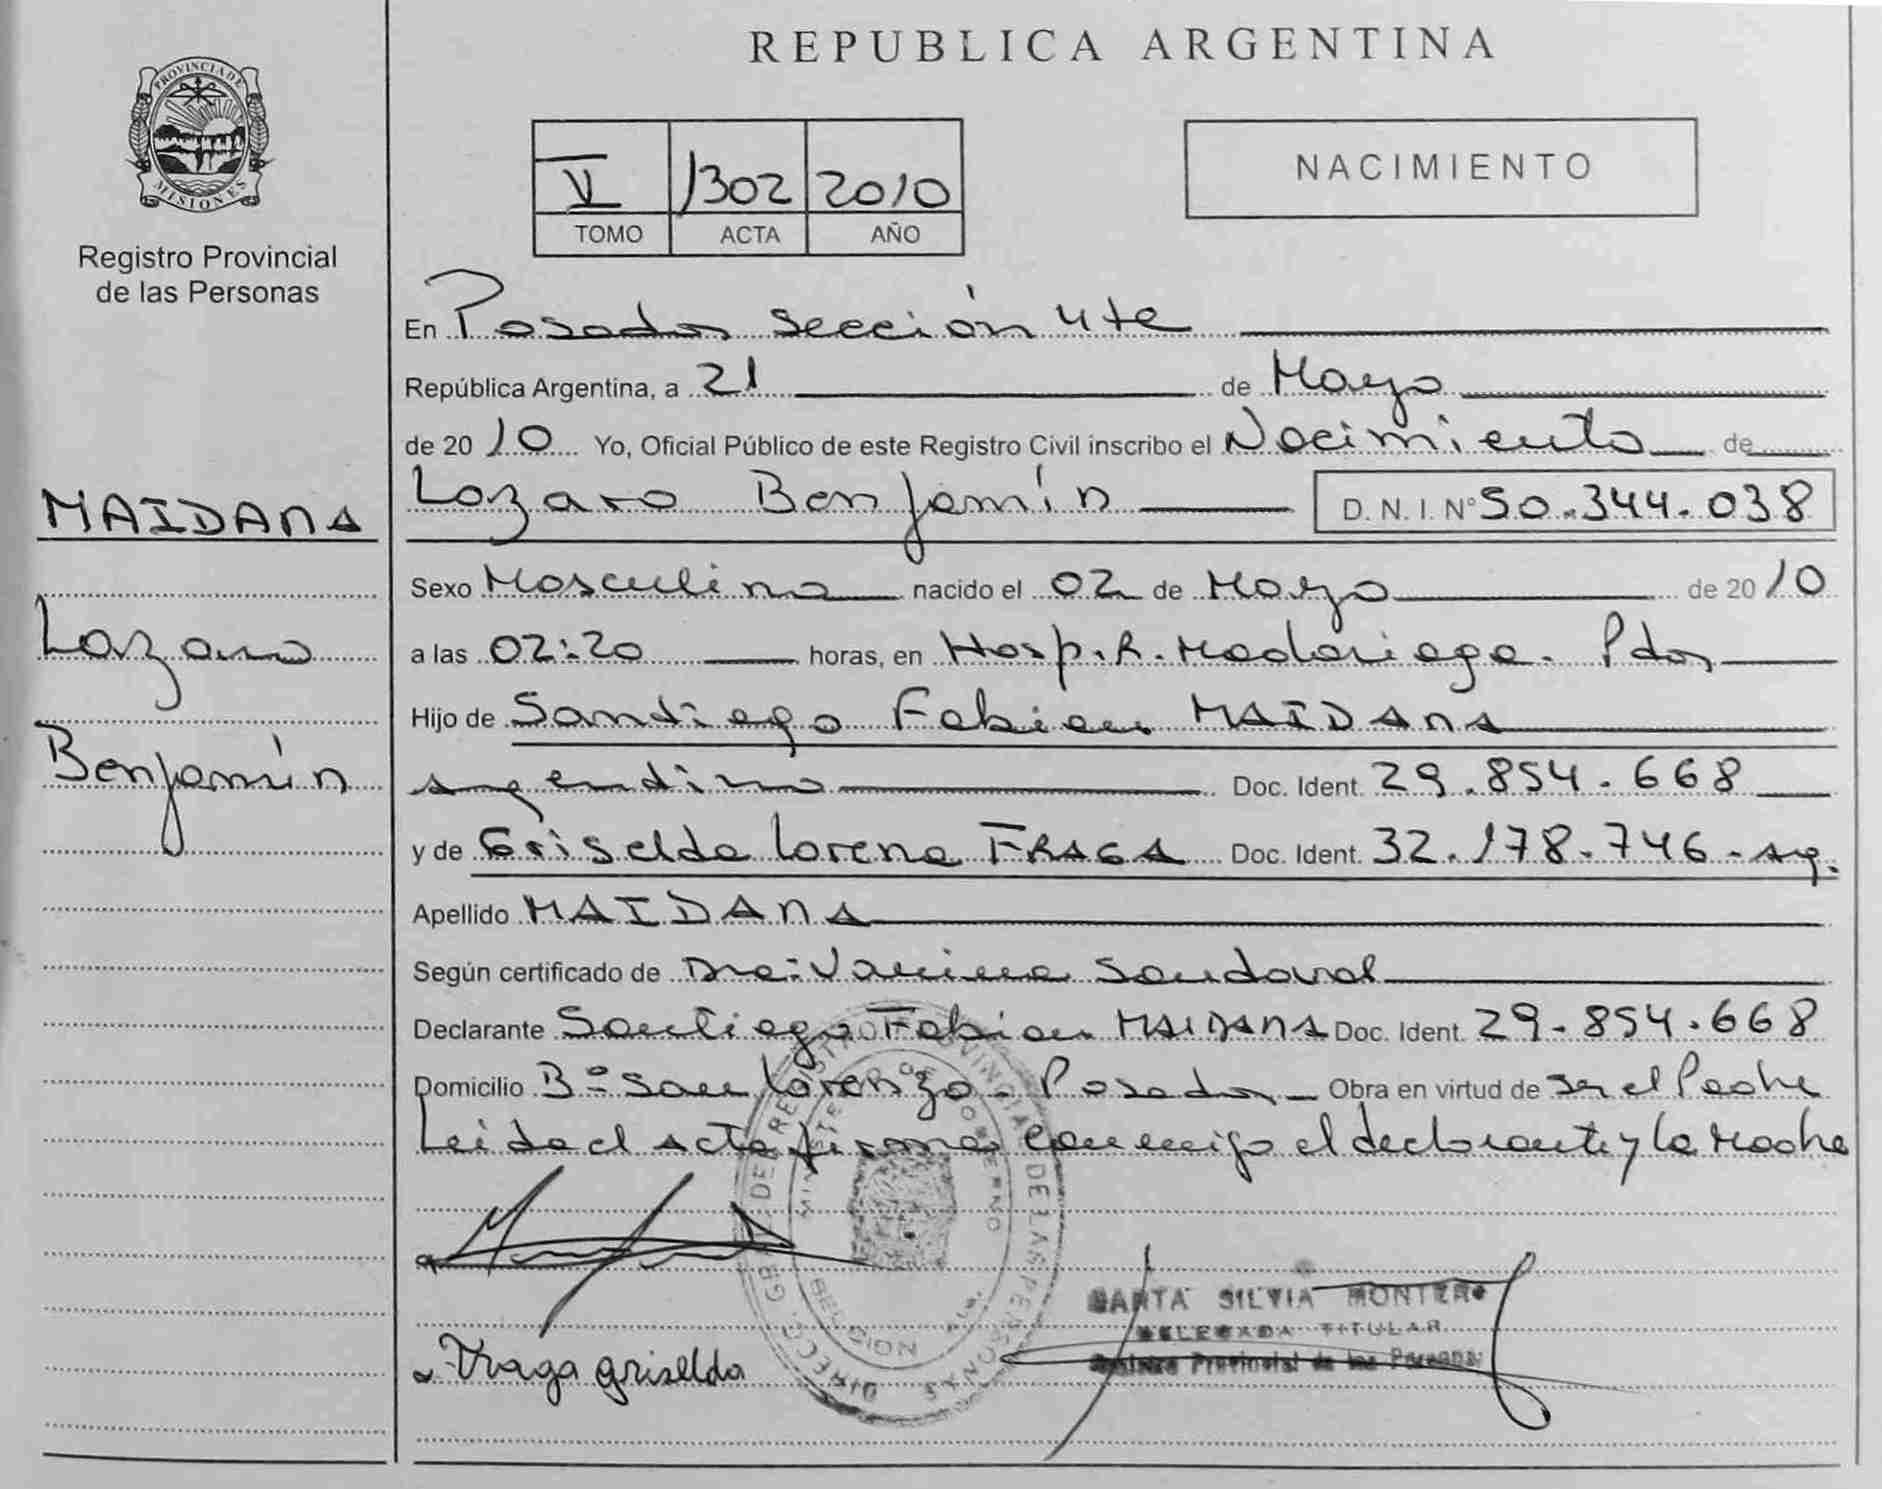 REPUBLICA ARGENTINA
PROVINCIA DE MISIONES
Registro Provincial
de las Personas
V 1302 2010
TOMO ACTA AÑO
NACIMIENTO
MAIDANA
Lazaro
Benjamín
En Posadas sección 4ta
República Argentina, a 21 de Mayo
de 2010 Yo, Oficial Público de este Registro Civil inscribo el Nacimiento de
Lazaro Benjamín D.N.I. Nº 50.344.038
Sexo Masculino nacido el 02 de Mayo de 2010
a las 02:20 horas, en Hosp. R. Madariaga. Pdas
Hijo de Santiago Fabian MAIDANA
argentino Doc. Ident. 29.854.668
y de Griselda Lorena FRAGA Doc. Ident. 32.178.746 - arg.
Apellido MAIDANA
Según certificado de Dra: Vanina Sandoval
Declarante Santiago Fabian MAIDANA Doc. Ident. 29.854.668
Domicilio Bº San Lorenzo - Posadas Obra en virtud de ser el Padre
Leida el acta firman conmigo el declarante y la Madre
DIRECC. GRAL. DE REGISTRO PROVINCIAL DE LAS PERSONAS
MINISTERIO DE GOBIERNO
SECCION 4ta.
SILVIA MONTERO
DELEGADA TITULAR
Registro Provincial de las Personas
Fraga griselda